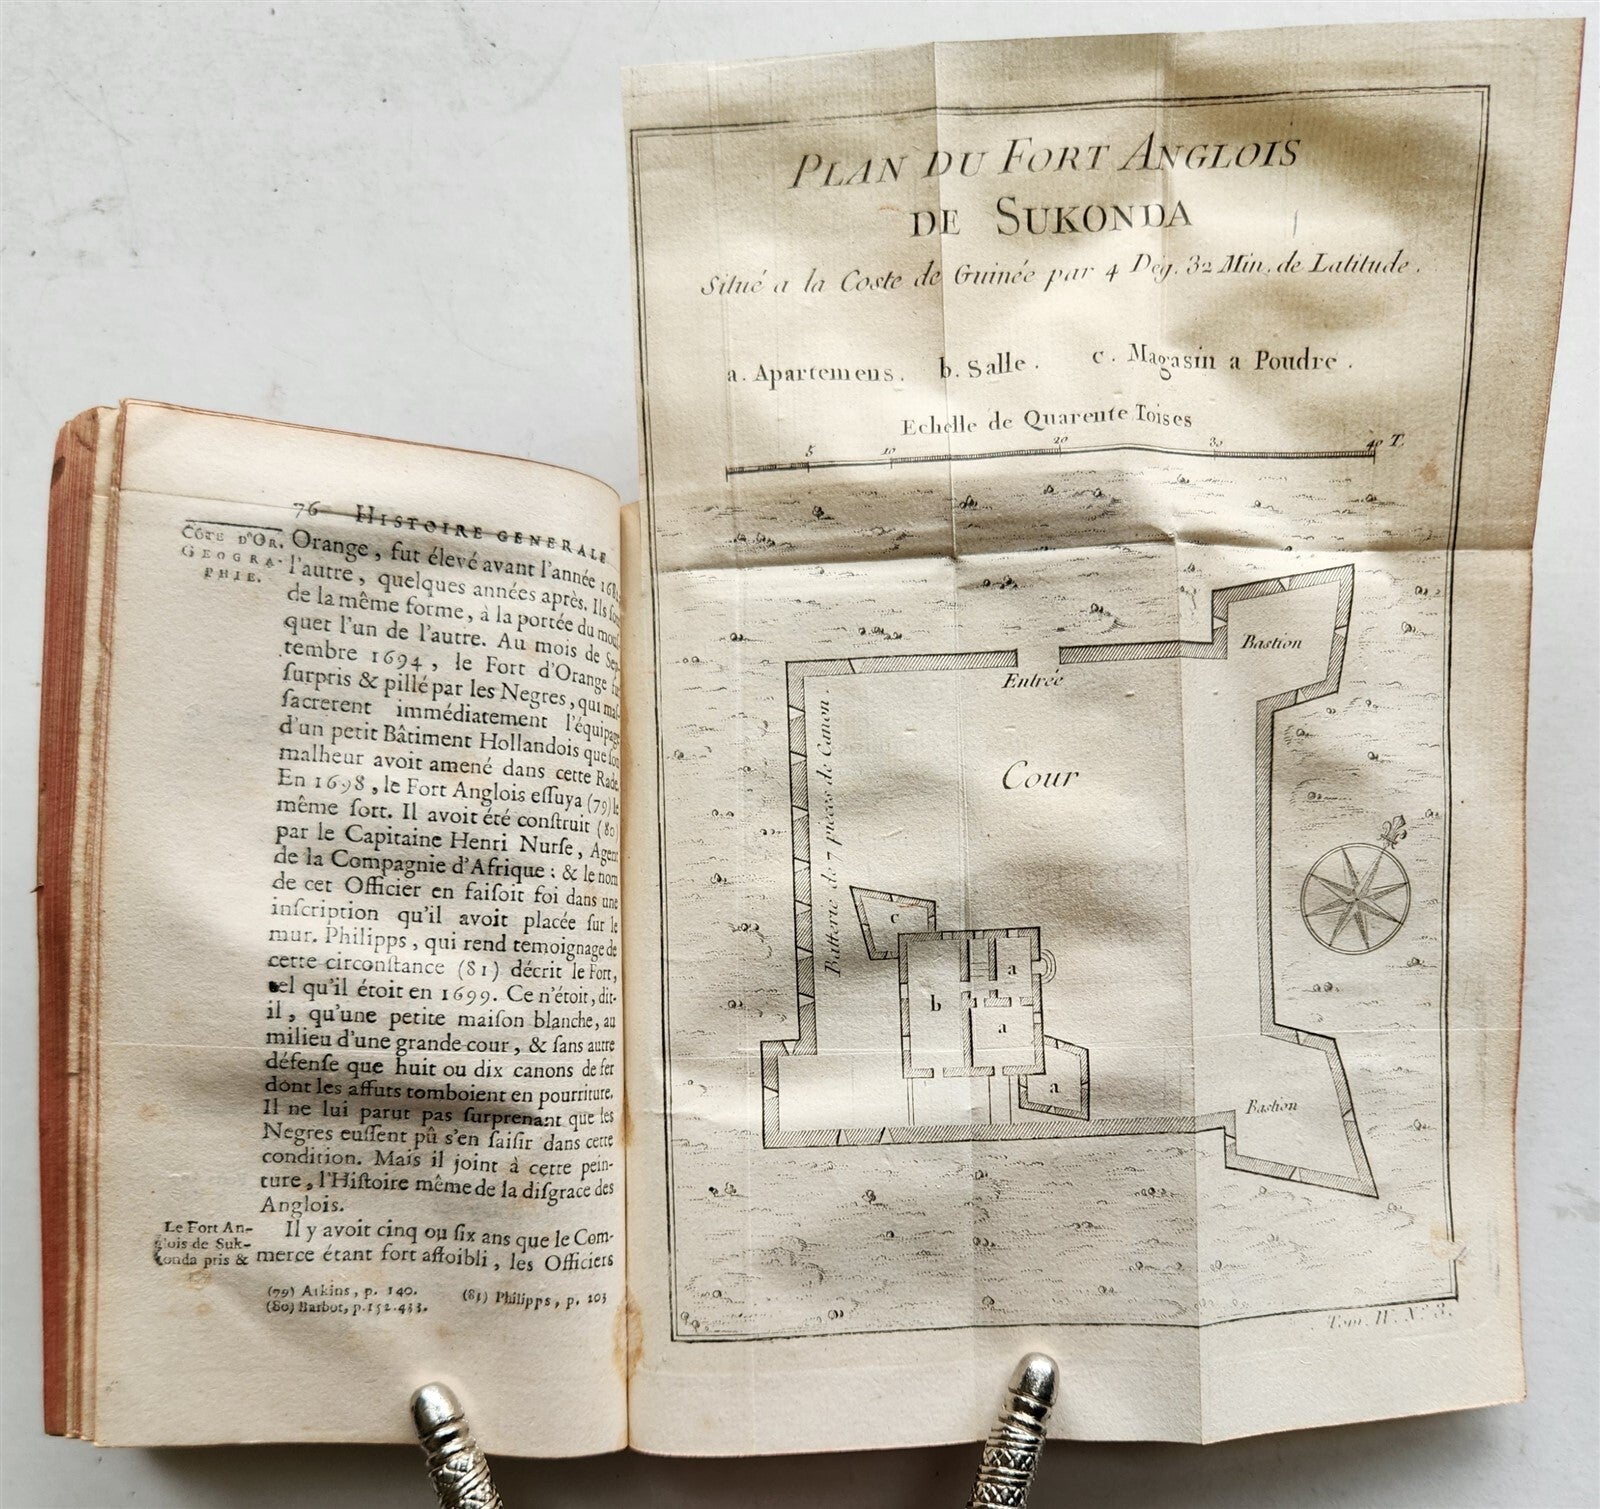 76 HISTOIRE GENERALE
CÔTE D'OR.
GEOGRA-
PHIE.
Orange, fut élevé avant l'année
l'autre, quelques années après. Ils
de la même forme, à la portée du mous-
quet l'un de l'autre. Au mois de Sep-
tembre 1694, le Fort d'Orange fut
surpris & pillé par les Negres, qui mas-
sacrerent immédiatement l'équipage
d'un petit Bâtiment Hollandois que son
malheur avoit amené dans cette Rade.
En 1698, le Fort Anglois essuya (79) le
même sort. Il avoit été construit (80)
par le Capitaine Henri Nurse, Agent
de la Compagnie d'Afrique : & le nom
de cet Officier en faisoit foi dans une
inscription qu'il avoit placée sur le
mur. Philipps, qui rend temoignage de
cette circonstance (81) décrit le Fort,
tel qu'il étoit en 1699. Ce n'étoit, dit-
il, qu'une petite maison blanche, au
milieu d'une grande cour, & sans autre
défense que huit ou dix canons de fer
dont les affuts tomboient en pourriture.
Il ne lui parut pas surprenant que les
Negres eussent pû s'en saisir dans cette
condition. Mais il joint à cette pein-
ture, l'Histoire même de la disgrace des
Anglois.
Le Fort An-
glois de Suk-
konda pris &
Il y avoit cinq ou six ans que le Com-
merce étant fort affoibli, les Officiers
(79) Atkins, p. 140.
(80) Barbot, p. 152. 433.
(81) Philipps, p. 203
PLAN DU FORT ANGLOIS
DE SUKONDA
Situé a la Coste de Guinée par 4 Deg. 32 Min. de Latitude.
a. Apartemens. b. Salle. c. Magasin a Poudre.
Echelle de Quarente Toises
5 10 20 30 40 T.
Bastion
Entrée
Batterie de 7 pieces de Canon.
Cour
c
a
b
a
a
Bastion
Tom. II. N.° 3.